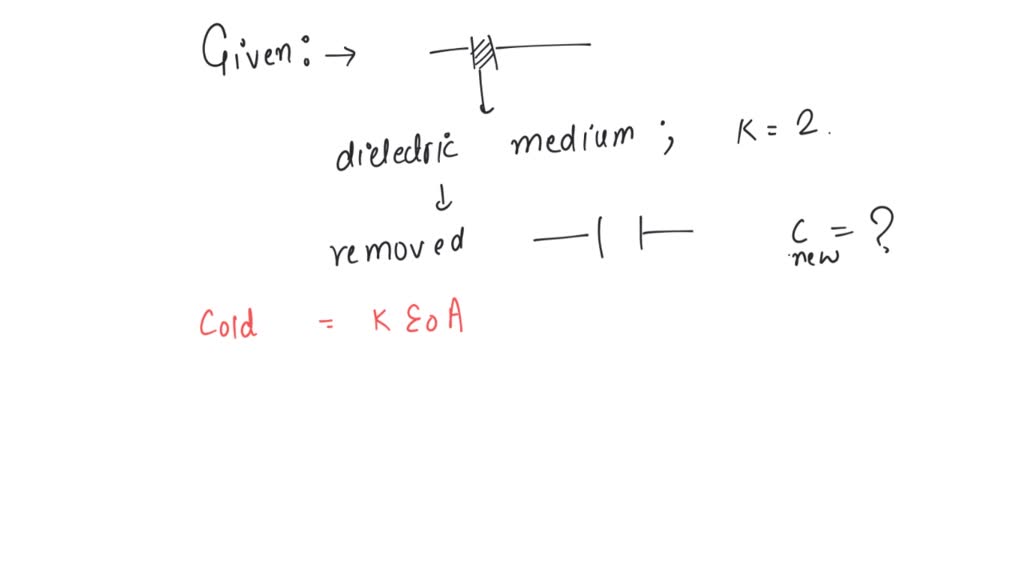 Given: →
dielectric medium ; K = 2.
↓
removed C new = ?
Cold = K ε0 A